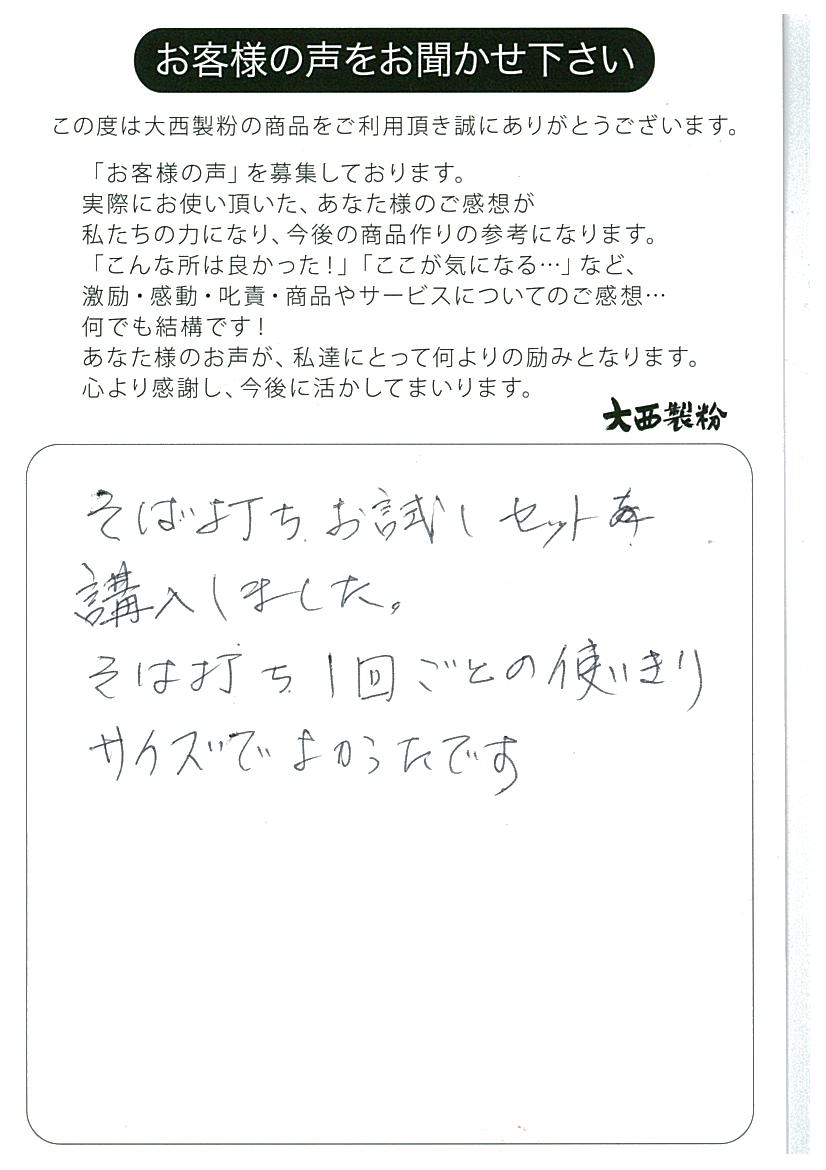 お客様の声をお聞かせ下さい
この度は大西製粉の商品をご利用頂き誠にありがとうございます。
「お客様の声」を募集しております。
実際にお使い頂いた、あなた様のご感想が
私たちの力になり、今後の商品作りの参考になります。
「こんな所は良かった！」「ここが気になる…」など、
激励・感動・叱責・商品やサービスについてのご感想…
何でも結構です！
あなた様のお声が、私達にとって何よりの励みとなります。
心より感謝し、今後に活かしてまいります。
大西製粉
そば打ちお試しセットを
講入しました。
そは打ち1回ごとの使いきり
サイズでよかったです